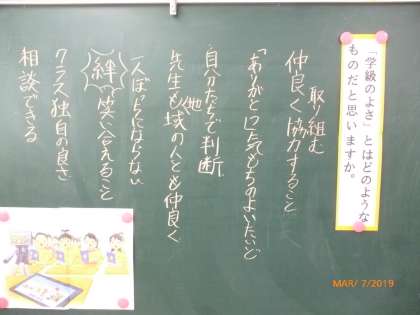 「学級のよさ」とはどのような
ものだと思いますか。
取り組む
仲良く協力すること
「ありがとう」気もちのよいたいど
自分たちで判断
先生も地域の人とも仲良く
一人ぼっちにならない
絆 笑い合えること
クラス独自の良さ
相談できる
MAR/ 7/2019